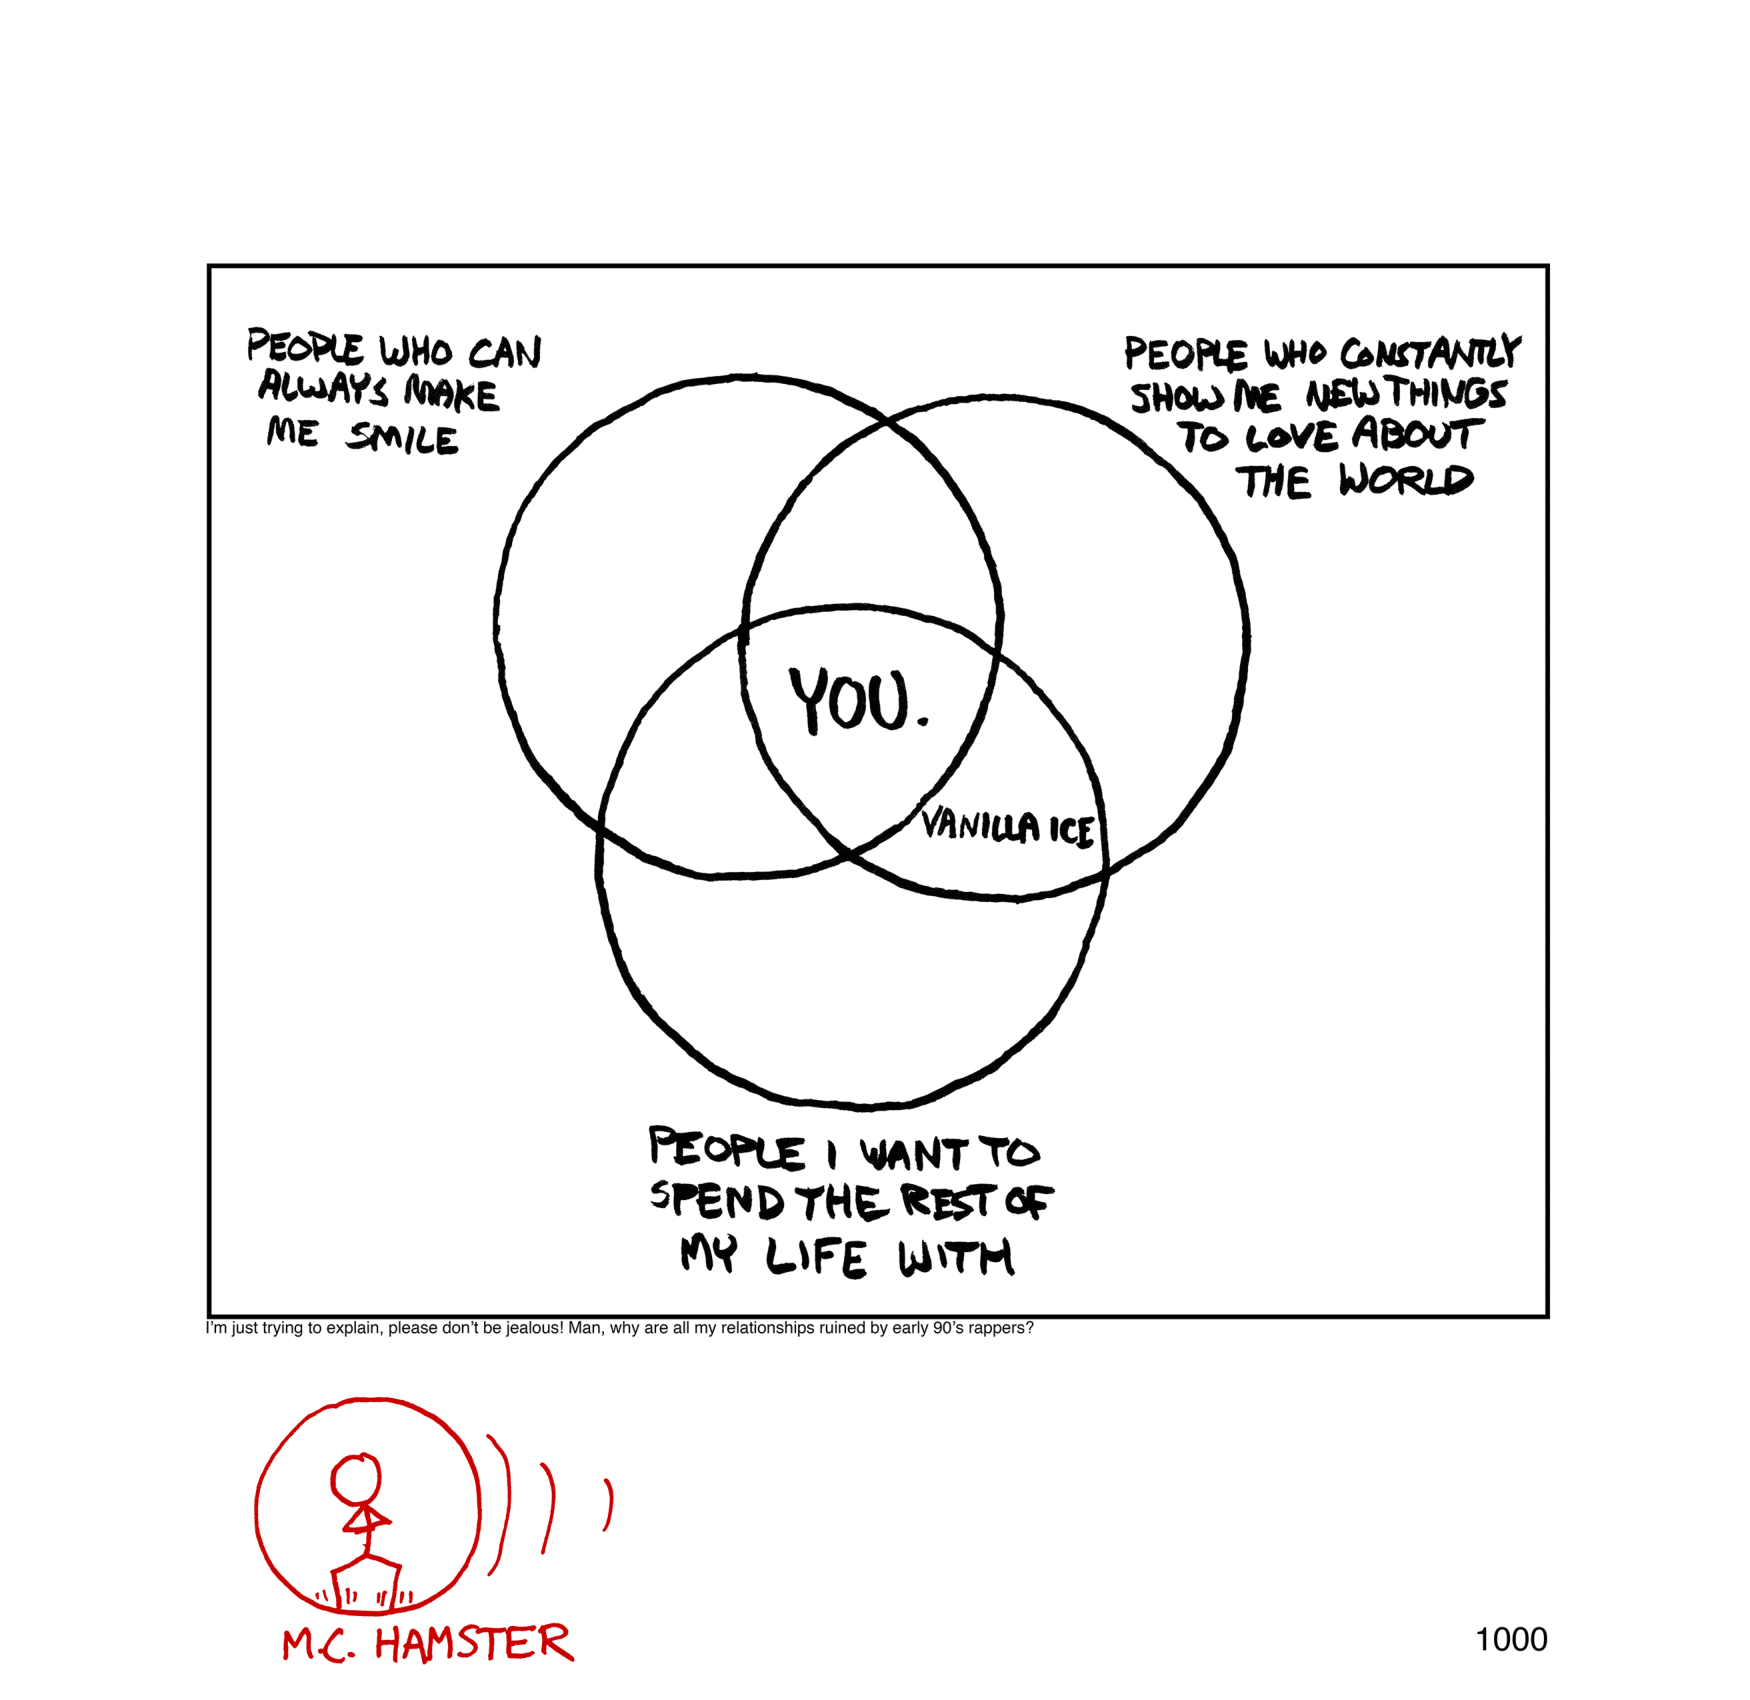 PEOPLE WHO CAN
ALWAYS MAKE
ME SMILE
PEOPLE WHO CONSTANTLY
SHOW ME NEW THINGS
TO LOVE ABOUT
THE WORLD
YOU.
VANILLA ICE
PEOPLE I WANT TO
SPEND THE REST OF
MY LIFE WITH
I'm just trying to explain, please don't be jealous! Man, why are all my relationships ruined by early 90's rappers?
M.C. HAMSTER
1000